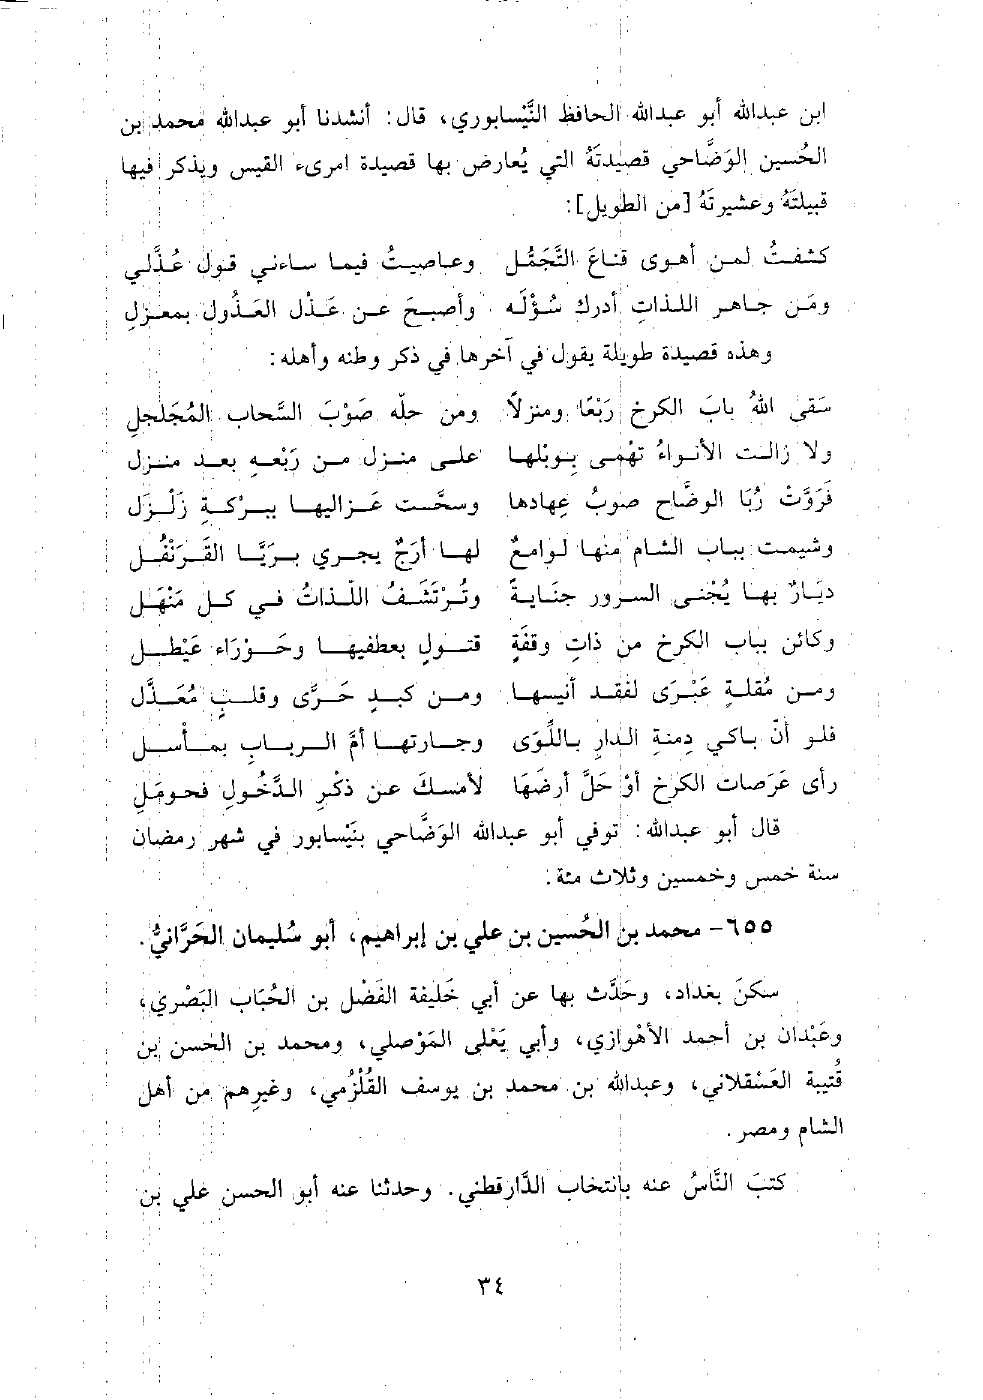 ابن عبدالله أبو عبدالله الحافظ النَّيْسابوري، قال: أنشدنا أبو عبدالله محمد بن
الحُسين الوَضَّاحي قصيدتَهُ التي يُعارض بها قصيدة امرىء القيس ويذكر فيها
قبيلتَهُ وعشيرتَهُ [من الطويل]:
كشفتُ لمن أهوى قناعَ التَّجَمُّل وعاصيتُ فيما ساءني قول عُذَّلي
ومَن جاهر اللذاتِ أدرك سُؤْلَه وأصبحَ عن عَذْل العَذُول بمعزلِ
وهذه قصيدة طويلة يقول في آخرها في ذكر وطنه وأهله:
سَقى اللهُ بابَ الكرخ رَبْعًا ومنزلاً ومن حلّه صَوْبَ السَّحاب المُجَلجلِ
ولا زالت الأنواءُ تهْمى بوبْلها على منزل من رَبْعهِ بعد منزل
فَرَوَّتْ رُبَا الوضَّاح صوبُ عِهادها وسحَّت عَزاليها ببرْكةِ زَلْزَل
وشيمت بباب الشام منها لوامعٌ لها أرَجٌ يجري برَيَّا القَرَنْفُل
ديَارٌ بها يُجْنى السرور جنَايةً وتُرْتَشَفُ اللّذاتُ في كل مَنْهَل
وكائن بباب الكرخ من ذاتِ وقفَةٍ قتولٍ بعطفيها وحَوْرَاء عَيْطل
ومن مُقلةٍ عَبْرَى لفقد أنيسها ومن كبدٍ حَرَّى وقلبٍ مُعَذَّل
فلو أنّ باكي دِمنةِ الدارِ باللَّوَى وجارتها أمَّ الربابِ بمأسلِ
رأى عَرَصات الكرخ أوْ حَلَّ أرضَهَا لأمسكَ عن ذكْرِ الدَّخُولِ فحوملِ
قال أبو عبدالله: توفي أبو عبدالله الوَضَّاحي بنَيْسابور في شهر رمضان
سنة خمس وخمسين وثلاث مئة.
٦٥٥- محمد بن الحُسين بن علي بن إبراهيم، أبو سُليمان الحَرَّانيُّ.
سكنَ بغداد، وحَدَّث بها عن أبي خَليفة الفَضْل بن الحُبَاب البَصْري،
وعَبْدان بن أحمد الأهْوازي، وأبي يَعْلى المَوْصلي، ومحمد بن الحَسن بن
قُتيبة العَسْقلاني، وعبدالله بن محمد بن يوسف القُلْزُمي، وغيرهم من أهل
الشام ومصر.
كتبَ النَّاسُ عنه بانتخاب الدَّارقطني. وحدثنا عنه أبو الحسن علي بن
٣٤